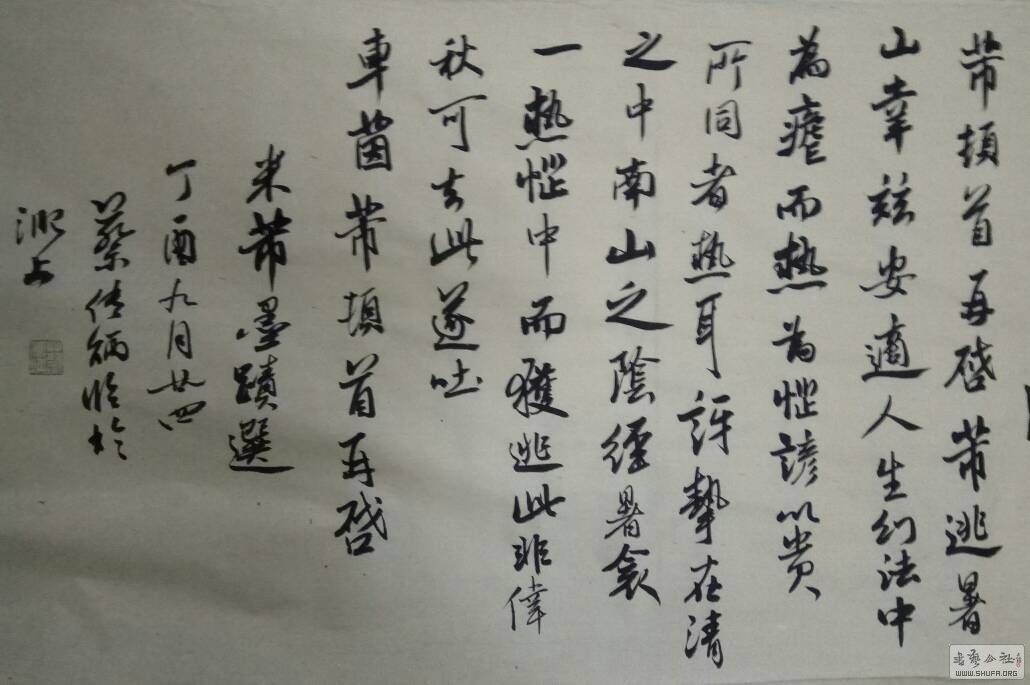 芾頓首再啓芾逃暑
山幸兹安適人生幻法中
為虐而热為惱諺以貴
所同者热耳訝摯在清
之中南山之陰經暑衾
一热惱中而獲逃此非偉
秋可去此遂吐
車茵芾頓首再啓
米芾墨蹟選
丁酉九月廿四
蔡傳炳臨於
上
書藝公社
WWW.SHUFA.ORG